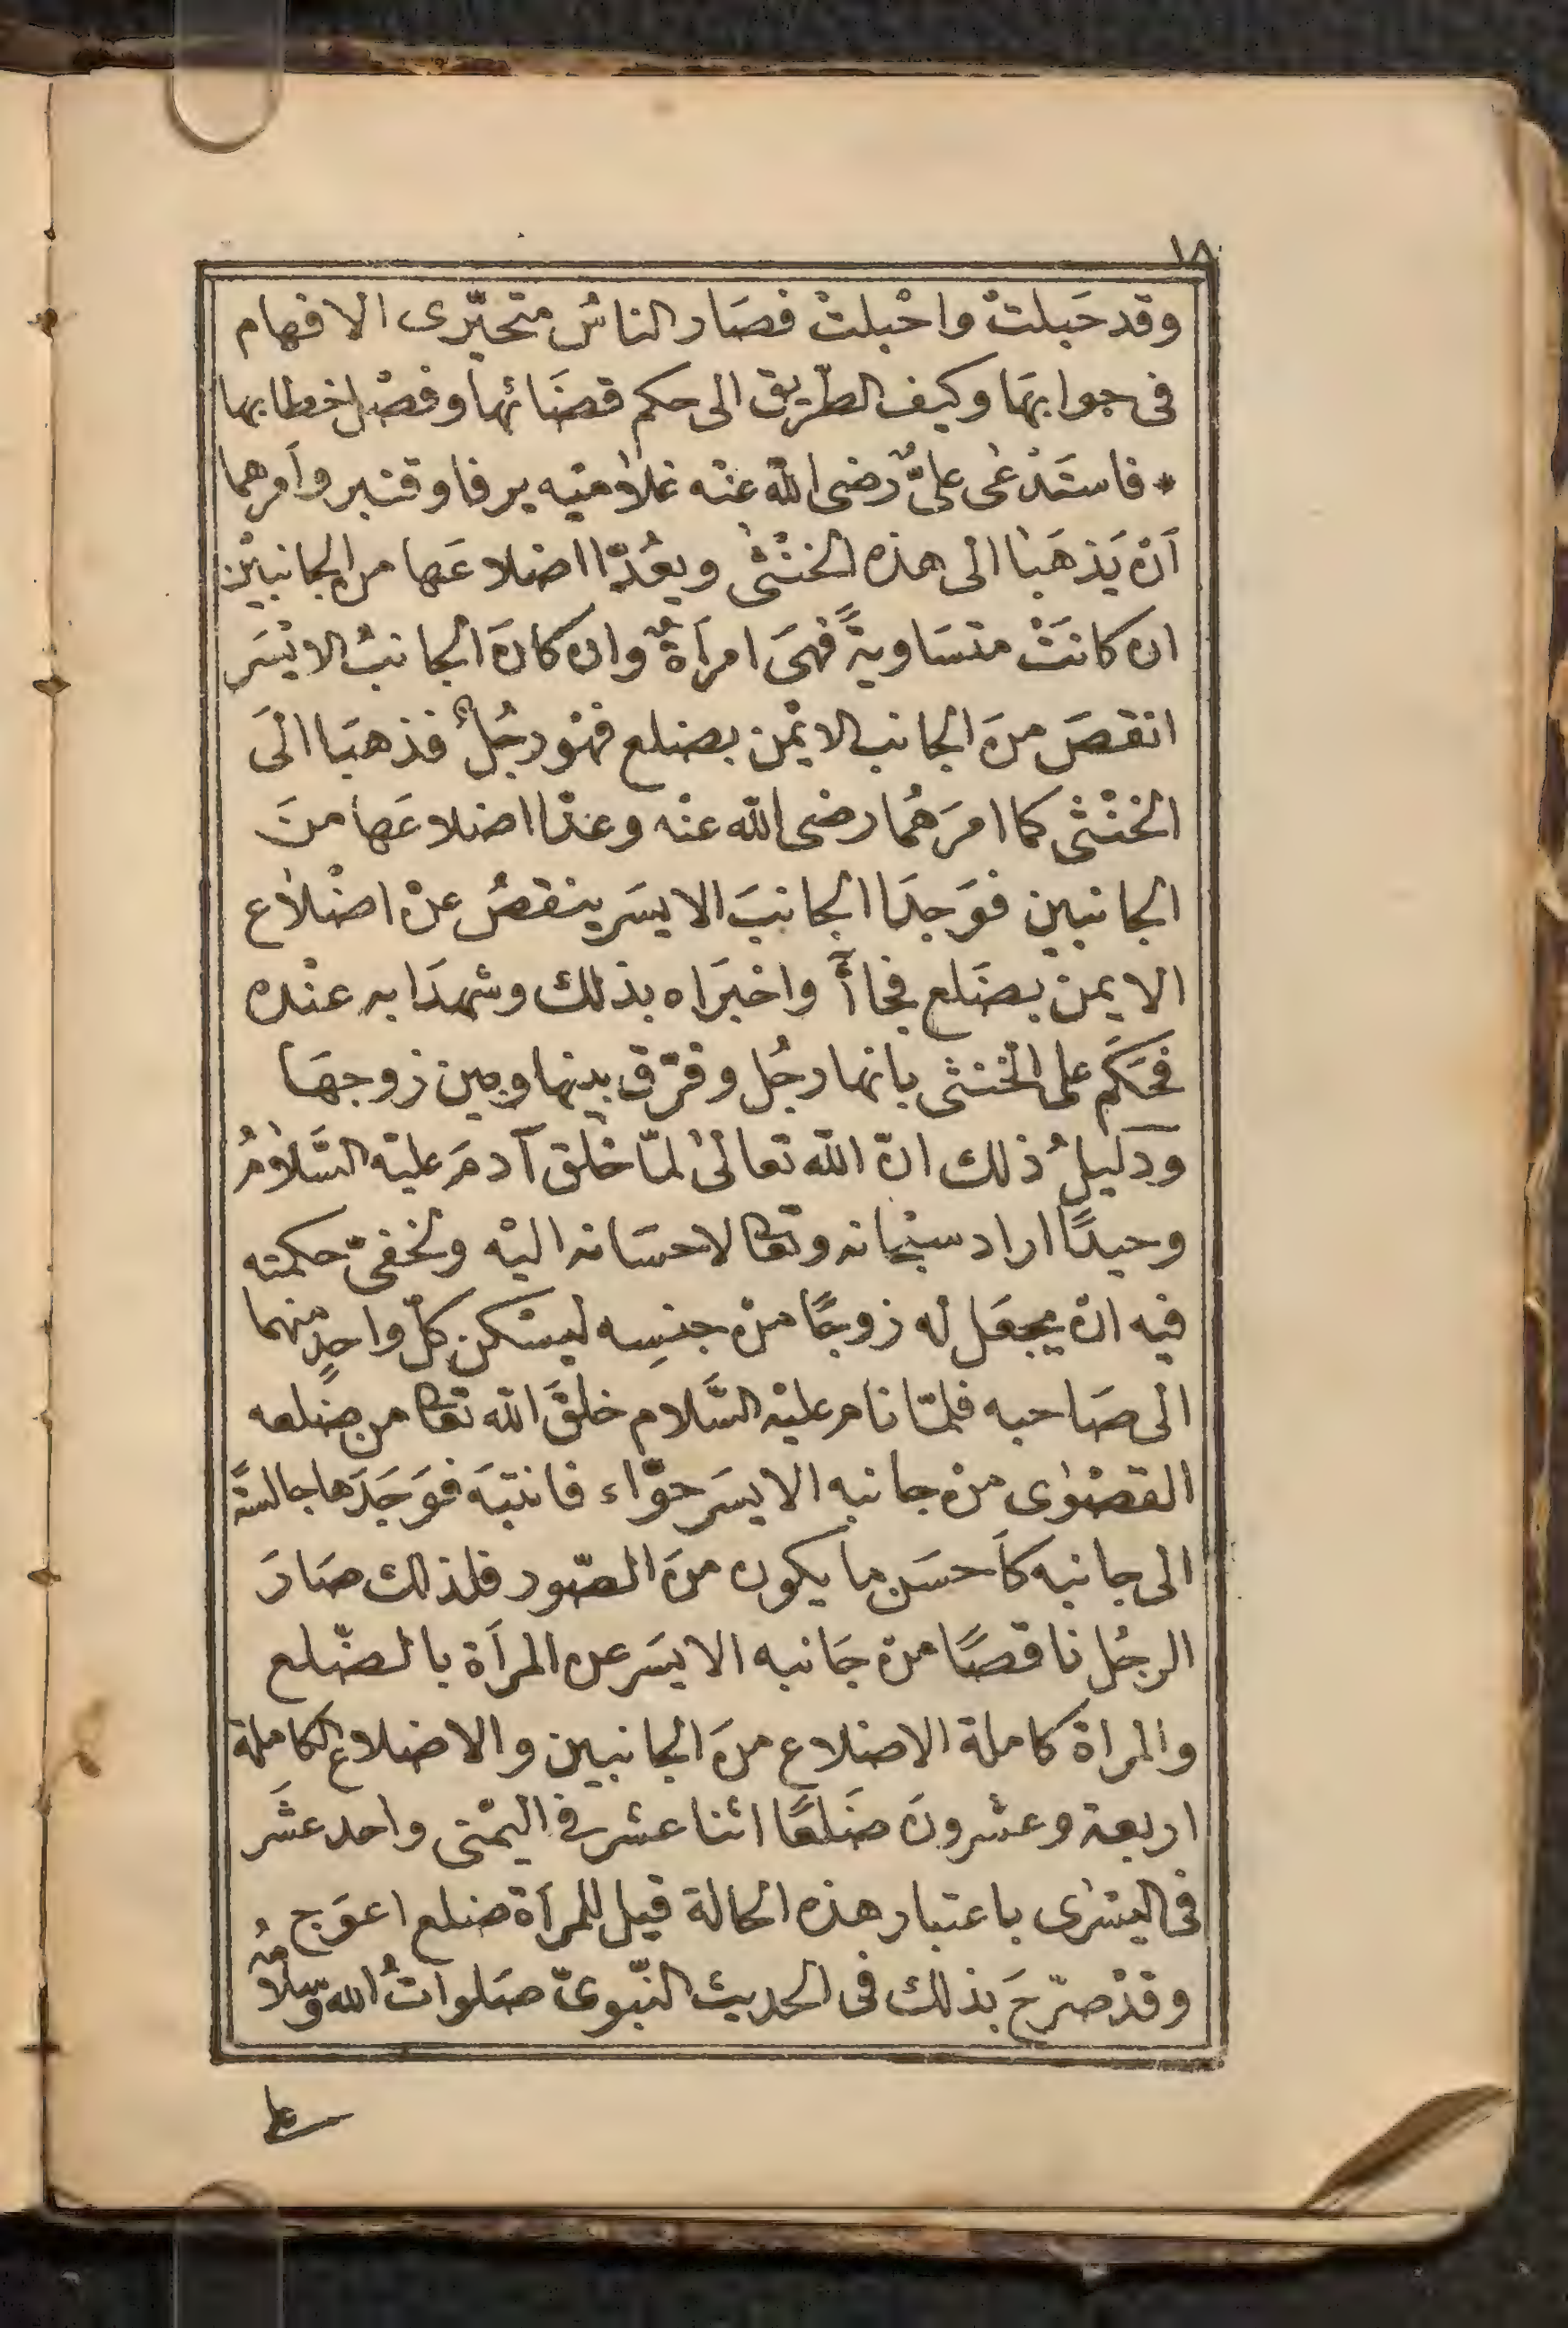 ١٨
وقد حَبلتْ واحْبلتْ فصَار الناسُ متحيّرى الافهام
فى جوابهَا وكيف الطّريق الى حكم قضَائها وفصْل خطابها
* فاستَدْعٰى علىٌّ رضى اللّه عنْه غلاٰميْه يرفا وقنبر وأمرهما
اَنْ يَذهَبٰا الٰى هذه الخنْثٰى ويعُدّا اضلاعَها من الجانبيْن
ان كانتْ متسَاويةً فهىَ امرأةٌ وان كانَ الجانبُ الايْسَر
انقصَ منَ الجانب الايْمن بضلع فهْو رجُلٌ فذهبَا الَى
الخنْثى كما امرَهُما رضى اللّه عنْه وعدّا اضلاعَها منَ
الجانبين فوَجدَا الجانبَ الايسَر ينقصُ عنْ اضْلاٰع
الايمن بضَلع فجاأَ واخبَراه بذلك وشهدَا به عنْده
فحَكَم على الخنثى بانها رجُل وفرّق بينها وبين زوجهَا
ودَليلُ ذلك انّ اللّه تعالٰى لمّا خلق آدمَ عليْه السَّلاٰمُ
وحيدًا اراد سبْحانه وتعا لاحسَانه اليْه ولخفىّ حكمته
فيه انْ يجعَل له زوجًا منْ جنسِه ليسْكن كلّ واحدٍ منهما
الٰى صَاحبه فلمّا نام عليْه السَّلام خلقَ اللّه تعا من ضِلعه
القصْوٰى منْ جانبه الايسَر حوّاء فانتبَه فوَجَدَها جالسَةً
الى جانبه كاَحسَن ما يكون منَ الصّور فلذلك صَارَ
الرجُل ناقصًا منْ جَانبه الايسَر عن المرأة بالضّلع
والمراة كاملة الاضلاع منَ الجانبين والاضلاع الكاملة
اربعة وعشْرونَ ضَلعًا اثنا عشر فى اليمْنى واحد عشَر
فى اليسْرٰى باعتبار هذه الحالة قيل للمرأة ضلع اعوَج
وقدْ صرّحَ بذلك فى الحديث النّبوىّ صَلواتُ اللّه وسلاٰمُه